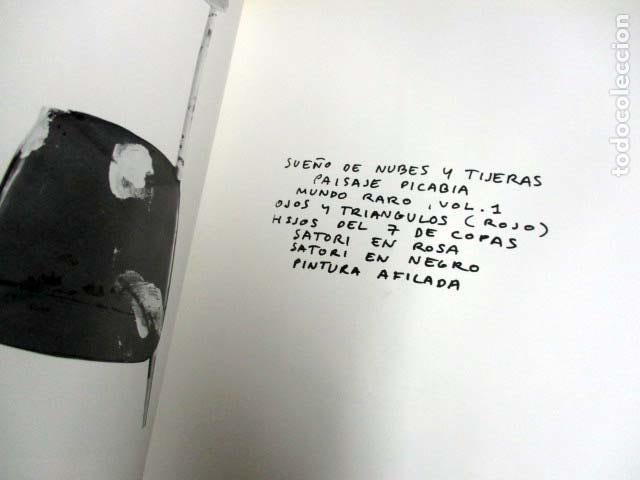 SUEÑO DE NUBES Y TIJERAS
PAISAJE PICABIA
MUNDO RARO, VOL. 1
OJOS Y TRIANGULOS (ROJO)
HIJOS DEL 7 DE COPAS
SATORI EN ROSA
SATORI EN NEGRO
PINTURA AFILADA
todocoleccion